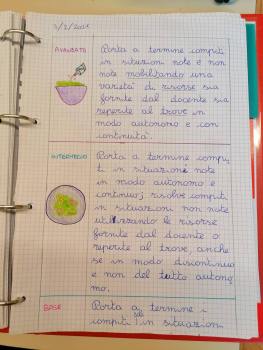 3/2/2021
AVANZATO
Porta a termine compiti
in situazioni note e non
note mobilitando una
varietà di risorse sia
fornite dal docente sia
reperite al trove in
modo autonomo e con
continuità.
INTERMEDIO
Porta a termine compi
ti in situazione note
in modo autonomo e
continuo; risolve compiti
in situazioni non note
utilizzando le risorse
fornite dal docente o
reperite al trove, anche
se in modo discontinuo
e non del tutto autono
mo.
BASE
Porta a termine i
compiti solo in situazioni